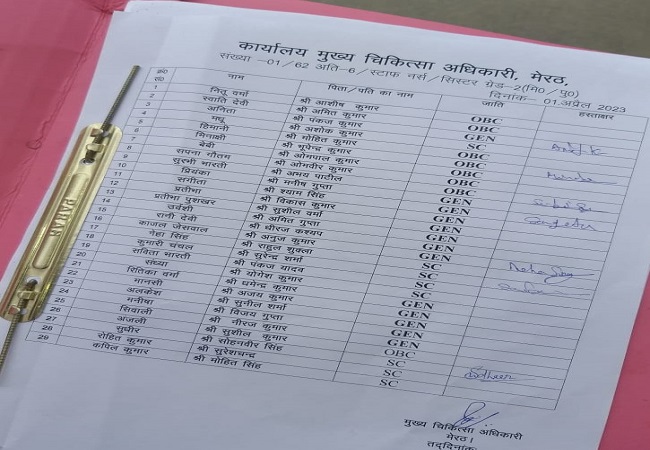 कार्यालय मुख्य चिकित्सा अधिकारी, मेरठ,
संख्या –01/62 अति–6/स्टाफ नर्स/सिस्टर ग्रेड–2(मि0/पु0)
दिनांक– 01.अप्रैल 2023
नाम
पिता/पति का नाम
जाति
हस्ताक्षर
1
2
3
4
5
6
7
8
9
10
11
12
13
14
15
16
17
18
19
20
21
22
23
24
25
26
27
28
29
नितू वर्मा
स्वाति देवी
अनिता
मधु
हिमानी
मिनाक्षी
बेबी
सपना गौतम
सुरभी भारती
प्रियंका
संगीता
प्रतीभा
प्रतीभा पुशत्कर
उर्वशी
रानी देवी
काजल जेसवाल
नेहा सिंह
कुमारी चंचल
सविता भारती
संध्या
रितिका वर्मा
मानसी
अलकेश
मनीषा
सिवाली
अंजली
सुधीर
रोहित कुमार
कपिल कुमार
श्री आशीष कुमार
श्री अमित कुमार
श्री पंकज कुमार
श्री अशोक कुमार
श्री मोहित कुमार
श्री भूपेन्द्र कुमार
श्री ओमपाल कुमार
श्री ओमवीर कुमार
श्री अभय पाटील
श्री मनीष गुप्ता
श्री श्याम सिंह
श्री विकास कुमार
श्री सुशील वर्मा
श्री अमित गुप्ता
श्री धीरज कश्यप
श्री अनुज कुमार
श्री राहुल शुक्ला
श्री सुरेन्द्र शर्मा
श्री पंकज यादव
श्री योगेश कुमार
श्री धमेन्द्र कुमार
श्री अजय कुमार
श्री सुनील शर्मा
श्री विजय गुप्ता
श्री नीरज कुमार
श्री सुशील कुमार
श्री सोहनवीर सिंह
श्री सुरेशचन्द्र
श्री मोहित सिंह
OBC
OBC
GEN
SC
OBC
OBC
OBC
OBC
GEN
GEN
GEN
GEN
GEN
GEN
SC
SC
SC
GEN
GEN
GEN
GEN
OBC
SC
SC
SC
मुख्य चिकित्सा अधिकारी
मेरठ।
तद्दिनांक